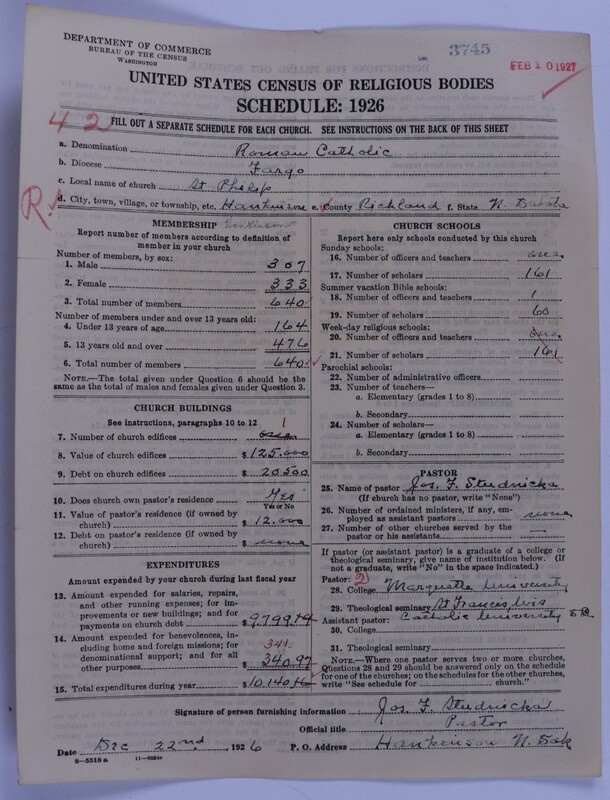 DEPARTMENT OF COMMERCE
BUREAU OF THE CENSUS
WASHINGTON
3745
FEB 10 1927
UNITED STATES CENSUS OF RELIGIOUS BODIES
SCHEDULE: 1926
42
FILL OUT A SEPARATE SCHEDULE FOR EACH CHURCH. SEE INSTRUCTIONS ON THE BACK OF THIS SHEET
a. Denomination Roman Catholic
b. Diocese Fargo
c. Local name of church St Philips
R. d. City, town, village, or township, etc. Hankinson e. County Richland f. State N. Dakota
MEMBERSHIP Hankinson
Report number of members according to definition of member in your church
Number of members, by sex:
1. Male 307
2. Female 333
3. Total number of members 640
Number of members under and over 13 years old:
4. Under 13 years of age 164
5. 13 years old and over 476
6. Total number of members 640
NOTE.—The total given under Question 6 should be the same as the total of males and females given under Question 3.
CHURCH BUILDINGS
See instructions, paragraphs 10 to 12 1
7. Number of church edifices one
8. Value of church edifices $125.000
9. Debt on church edifices $20500
10. Does church own pastor's residence Yes
Yes or No
11. Value of pastor's residence (if owned by church) $12.000
12. Debt on pastor's residence (if owned by church) $none
EXPENDITURES
Amount expended by your church during last fiscal year
13. Amount expended for salaries, repairs, and other running expenses; for improvements or new buildings; and for payments on church debt $9799.19
14. Amount expended for benevolences, including home and foreign missions; for denominational support; and for all other purposes 341. $340.97
15. Total expenditures during year $10.140.16
CHURCH SCHOOLS
Report here only schools conducted by this church
Sunday schools:
16. Number of officers and teachers one
17. Number of scholars 161
Summer vacation Bible schools:
18. Number of officers and teachers 1
19. Number of scholars 60
Week-day religious schools:
20. Number of officers and teachers one
21. Number of scholars 161
Parochial schools:
22. Number of administrative officers
23. Number of teachers—
a. Elementary (grades 1 to 8)
b. Secondary
24. Number of scholars—
a. Elementary (grades 1 to 8)
b. Secondary
PASTOR
25. Name of pastor Jos. F. Studnicka
(If church has no pastor, write "None")
26. Number of ordained ministers, if any, employed as assistant pastors none
27. Number of other churches served by the pastor or his assistants
If pastor (or assistant pastor) is a graduate of a college or theological seminary, give name of institution below. (If not a graduate, write "No" in the space indicated.)
Pastor: 2
28. College Marquette University
29. Theological seminary St Francis Wis
Assistant pastor: Catholic University
30. College
31. Theological seminary
NOTE.—Where one pastor serves two or more churches, Questions 28 and 29 should be answered only on the schedule for one of the churches; on the schedules for the other churches, write "See schedule for church."
Signature of person furnishing information Jos F. Studnicka
Official title Pastor
Date Dec 22nd, 1926 P. O. Address Hankinson N. Dak
8—5518 a